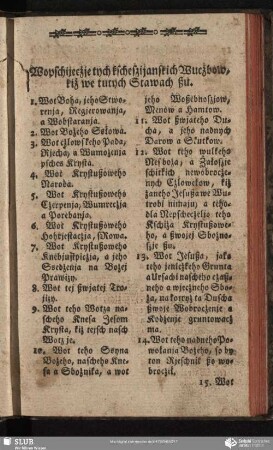 Wopschijeczje tych kscheszijanskich Wuczbow,
kiż we tutych Stawach ßu.
1. Wot Boha, jeho Stwo-
renja, Regierowanja,
a Wobstaranja.
2. Wot Bożeho Sołowa.
3. Wot człowskeho Pada,
Rjecha, a Wumożenja
pschez Krysta.
4. Wot Krystußoweho
Naroda.
5. Wot Krystußoweho
Czerpenja, Wumreczja
a Porebanja.
6. Wot Krystußoweho
7. Wot Krystußoweho
a jeho
Ssedzenja na Bożej
Prawizy.
8. Wot tej ßwjatej Tro-
jizy.
9. Wot teho Wotza na-
scheho Knesa Jesom
Krysta, kiż tersch nasch
Wotz je.
10. Wot teho Syna
Bożeho, nascheho Kne-
sa a Sbożnika, a wot
jeho
Menow a Hamtow.
11. Wot ßwjateho Du-
cha, a jeho nadnych
Darow a Skutkow.
12. Wot teho wulkeho
schirkich newobrocze-
nych Człowekow, kiż
żaneho Jesußa we Wu-
trobi nimaju, a teho-
dla Nepscheczelje teho
Kschiża Krystußowe-
ho, a ßwojej Sbożno-
szje ßu.
13. Wot Jesußa, jako
teho jeniczkeho Grunta
a wjeczneho Sbo-
ża, na kotryż ta Duscha
ßwoje Wobroczenje a
Kodzenje gruntowacz
ma.
14. Wot teho nadneho Po-
wołanja Bożeho, so by
ton Rjeschnik ßo wo-
broczil.
15. Wot
SLUB